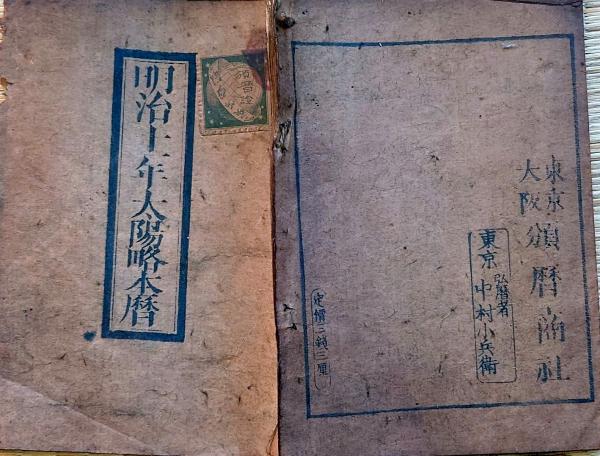 明治十年太陽略本暦
頒暦證
東京
大阪
頒暦商社
弘暦者
東京 中村小兵衛
定價三錢三厘